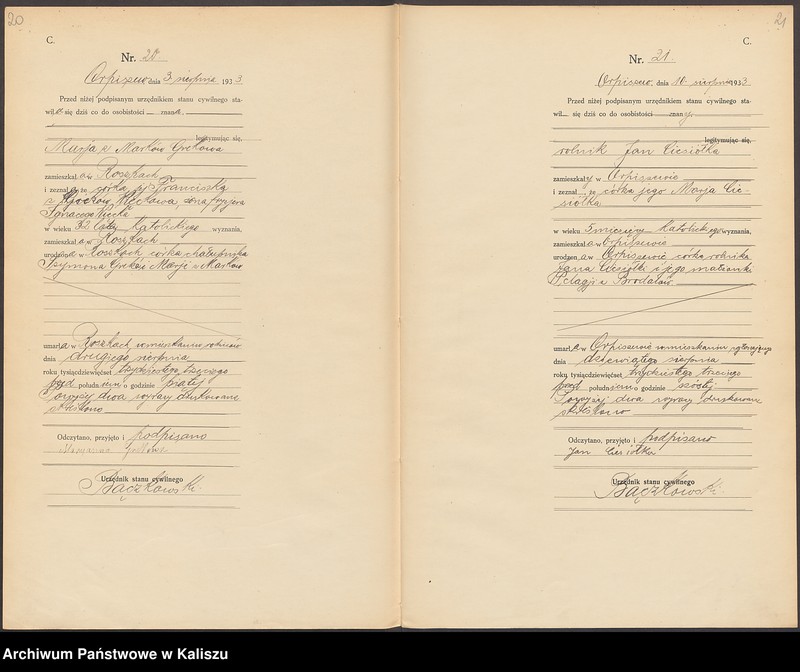 20
C.
Nr. 20
Orpiszew dnia 3 sierpnia 1933
Przed niżej podpisanym urzędnikiem stanu cywilnego sta-
wiła się dziś co do osobistości znana,
legitymując się,
Marja z Marków Grekowa
zamieszkała w Roszkach
i zeznała, że córka jej Franciszka
z Greków żona fryzjera
Ignacego
w wieku 32 lat, Katolickiego wyznania,
zamieszkała w Roszkach
urodzona w Roszkach córka chałupnika
Szymona Greków i Marji z Marków
umarła w Roszkach w mieszkaniu
dnia drugiego sierpnia
roku tysiącdziewięćset trzydziestego trzeciego
przed południem o godzinie piątej
Powyżej dwa wyrazy drukowane
skreślono
Odczytano, przyjęto i podpisano
Marianna
Urzędnik stanu cywilnego
Bączkowski
21
C.
Nr. 21
Orpiszew, dnia 10 sierpnia 1933
Przed niżej podpisanym urzędnikiem stanu cywilnego sta-
wił się dziś co do osobistości znany,
legitymując się,
rolnik Jan Ciesiółka
zamieszkały w Orpiszewie
i zeznał, że córka jego Marja Cie-
siółka
w wieku 5 miesięcy Katolickiego wyznania,
zamieszkała w Orpiszewie
urodzona w Orpiszewie córka rolnika
Jana Ciesiółki i jego małżonki
Pelagji z Brodalów
umarła w Orpiszewie w mieszkaniu zgłaszającego
dnia dziewiątego sierpnia
roku tysiącdziewięćset trzydziestego trzeciego
przed południem o godzinie szóstej
Powyżej dwa wyrazy drukowane
skreślono
Odczytano, przyjęto i podpisano
Jan Ciesiółka
Urzędnik stanu cywilnego
Bączkowski
Archiwum Państwowe w Kaliszu